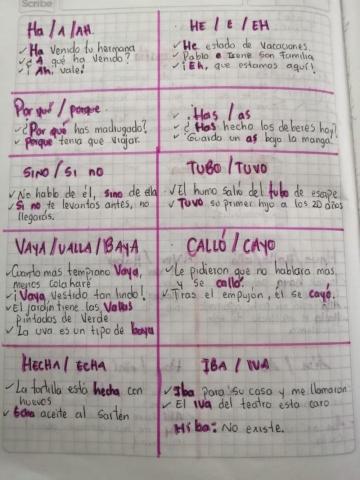 Scribe
Ha / A / AH.
✓ Ha venido tu hermana
✓ ¿A qué ha venido?
✓ ¡Ah, vale!
HE / E / EH
✓ He estado de vacaciones.
✓ Pablo e Irene son familia
✓ ¡Eh, que estamos aquí!
Por qué / porque
✓ ¿Por qué has madugado?
✓ Porque tenia que viajar.
Has / as
✓ ¿Has hecho los deberes hoy?
✓ Guardo un as bajo la manga.
SINO / SI NO
✓ No hablo de él, sino de ella
✓ Si no te levantas antes, no
llegarás.
TUBO / TUVO
✓ El humo salió del tubo de escape
✓ Tuvo su primer hijo a los 20 años
VAYA / VALLA / BAYA
✓ Cuanto más temprano vaya,
menos cola haré
✓ ¡Vaya, vestido tan lindo!
✓ El jardín tiene las vallas
pintadas de verde
✓ La uva es un tipo de baya
CALLÓ / CAYO
✓ Le pidieron que no hablara más
y se calló.
✓ Tras el empujón, él se cayó.
HECHA / ECHA
✓ La tortilla está hecha con
huevos
✓ Echa aceite al sartén
IBA / IVA
✓ Iba para su casa y me llamaron
✓ El IVA del teatro esta caro
Hiba: No existe.